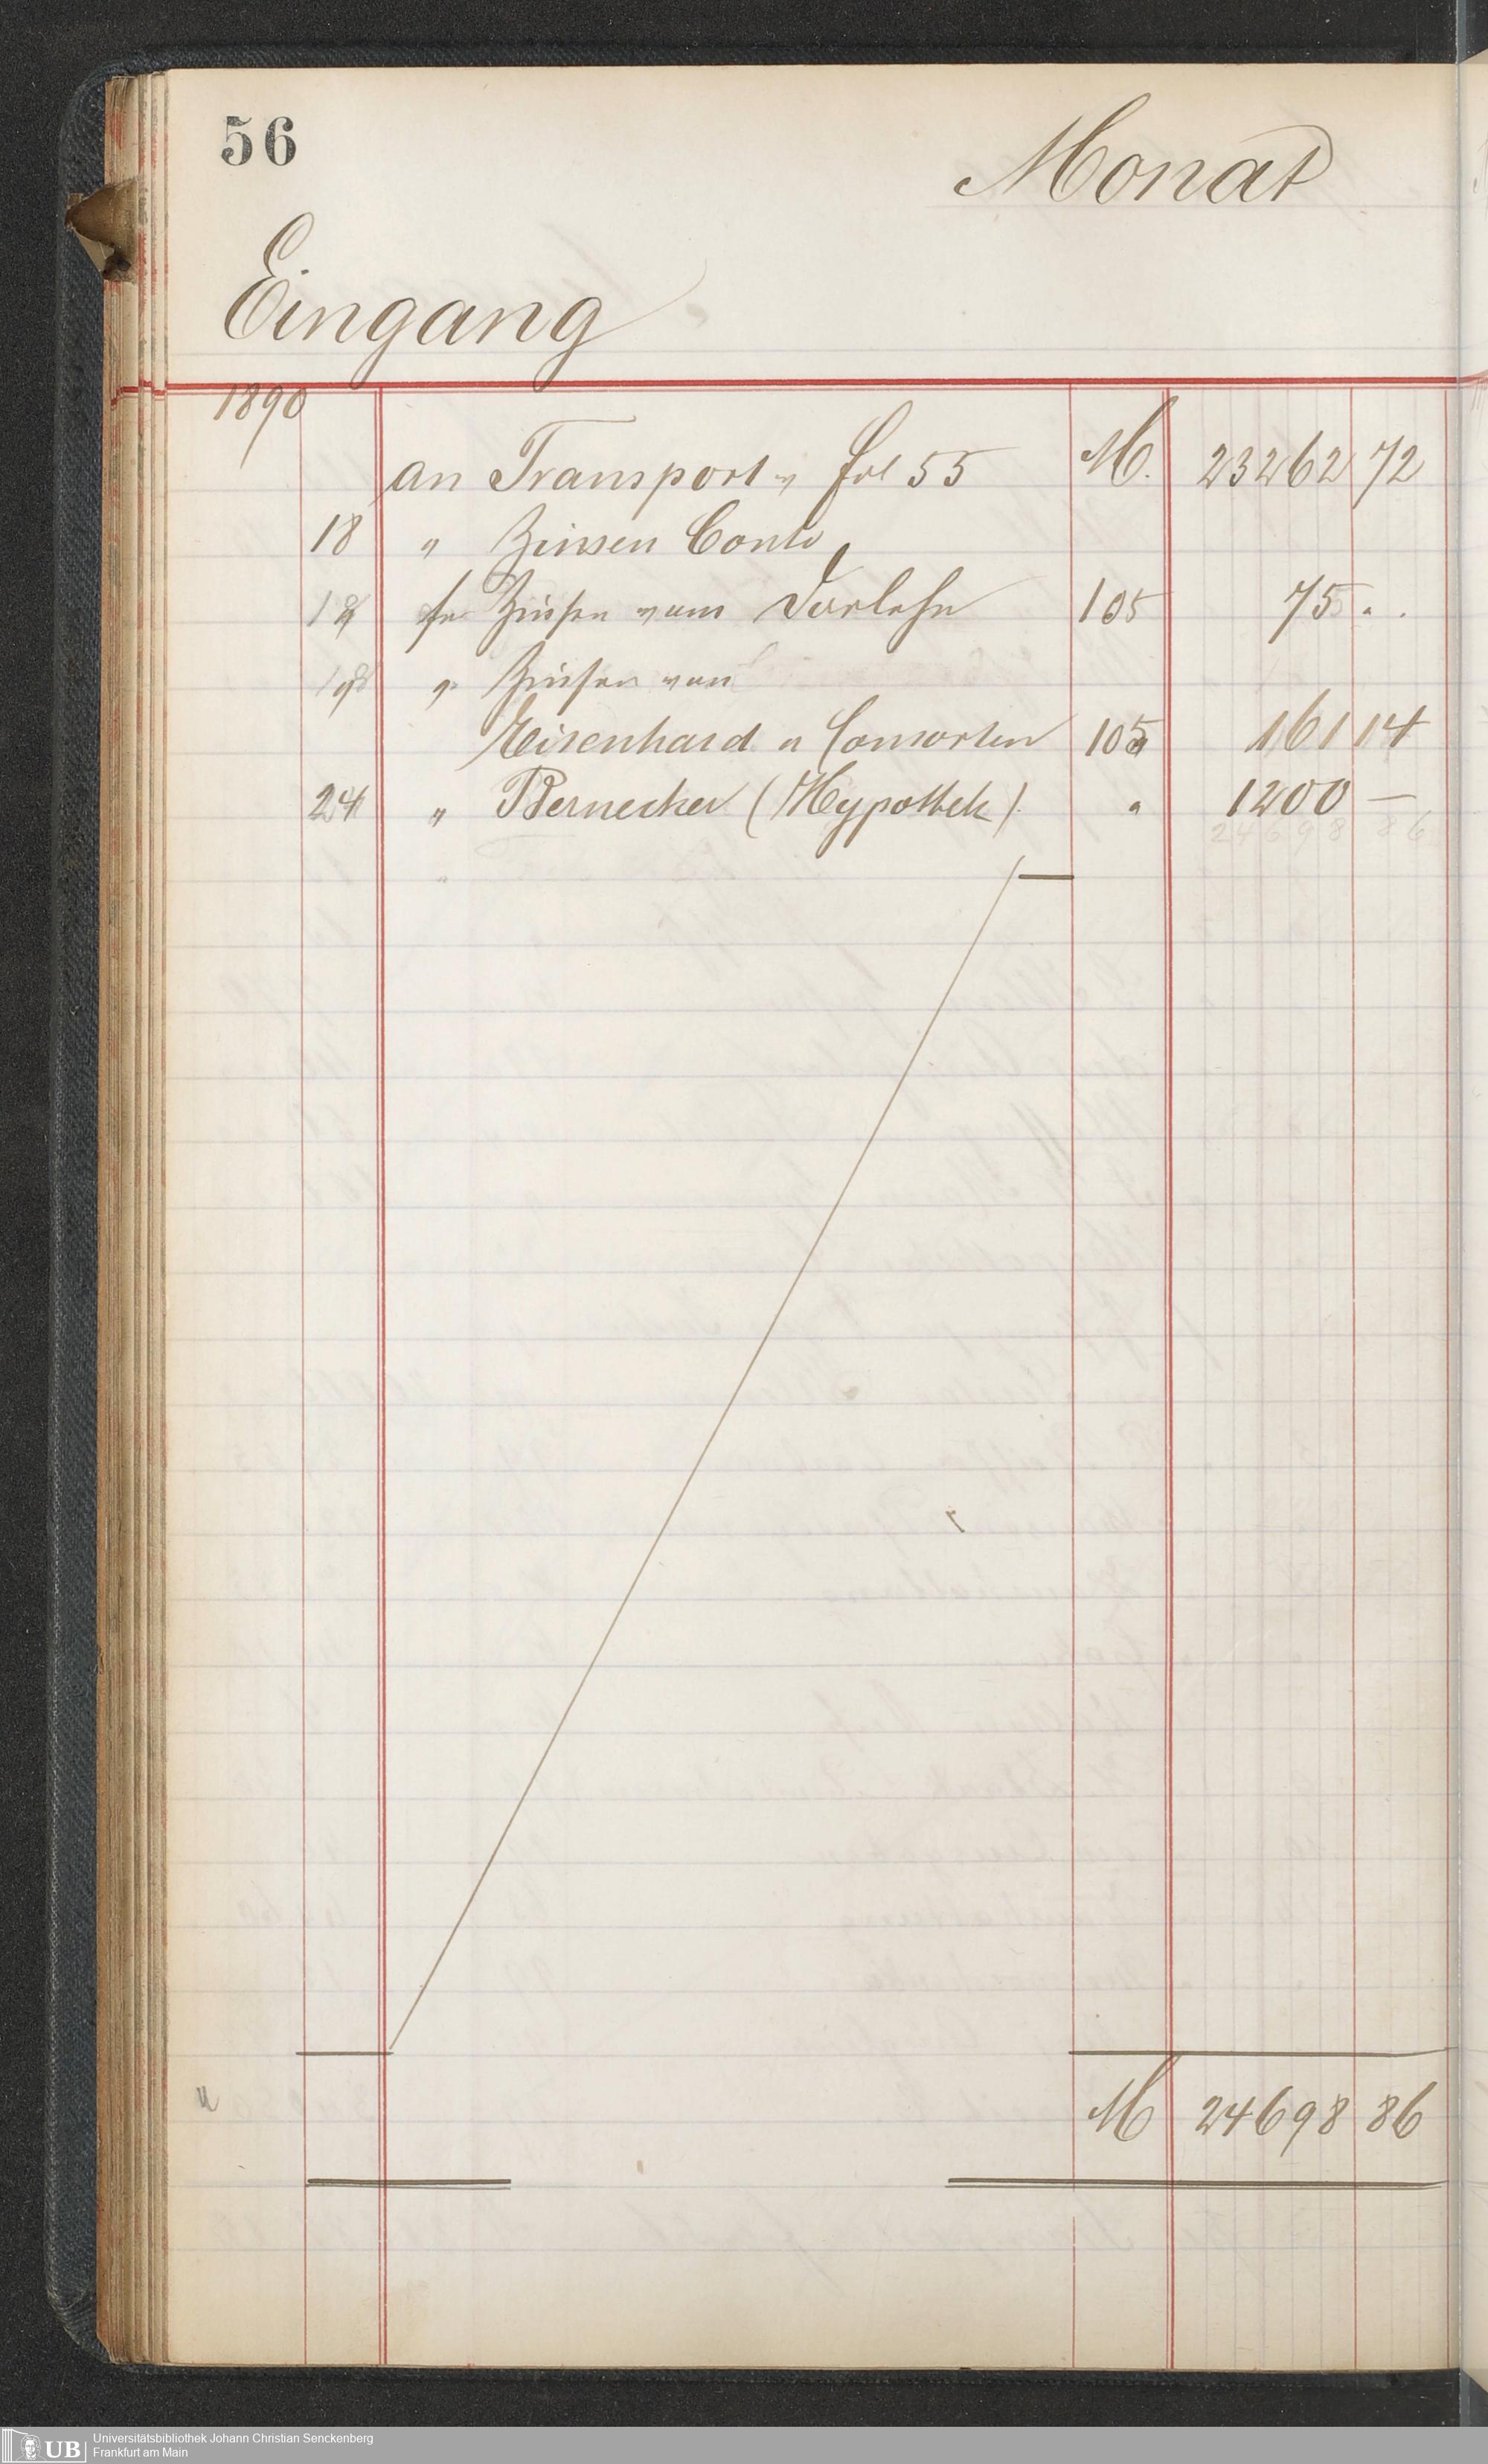 56
Monat
Eingang
1890
an Transport v fol 55 M. 23262 72
18 " Zinsen Conto
18 für Zinsen vom Darlehn 105 75 . .
18 " Zinsen von
Eisenhard u Consorten 105 161 14
24 " Bernecker (Hypothek). " 1200 —
24698 86
M 24698 86
UB
Universitätsbibliothek Johann Christian Senckenberg
Frankfurt am Main